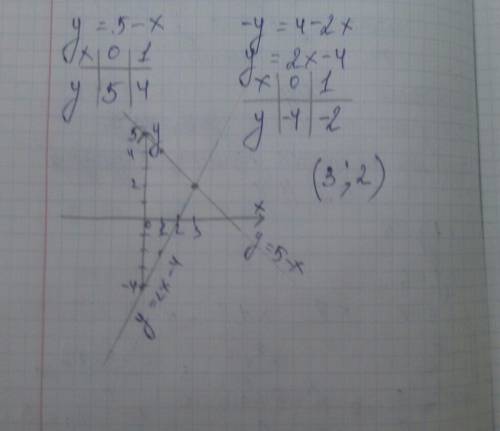 y = 5 - x
x 0 1
y 5 4
-y = 4 - 2x
y = 2x - 4
x 0 1
y -4 -2
(3; 2)
5 y
4
2
x
0 1 2 3
-4
y = 5 - x
y = 2x - 4